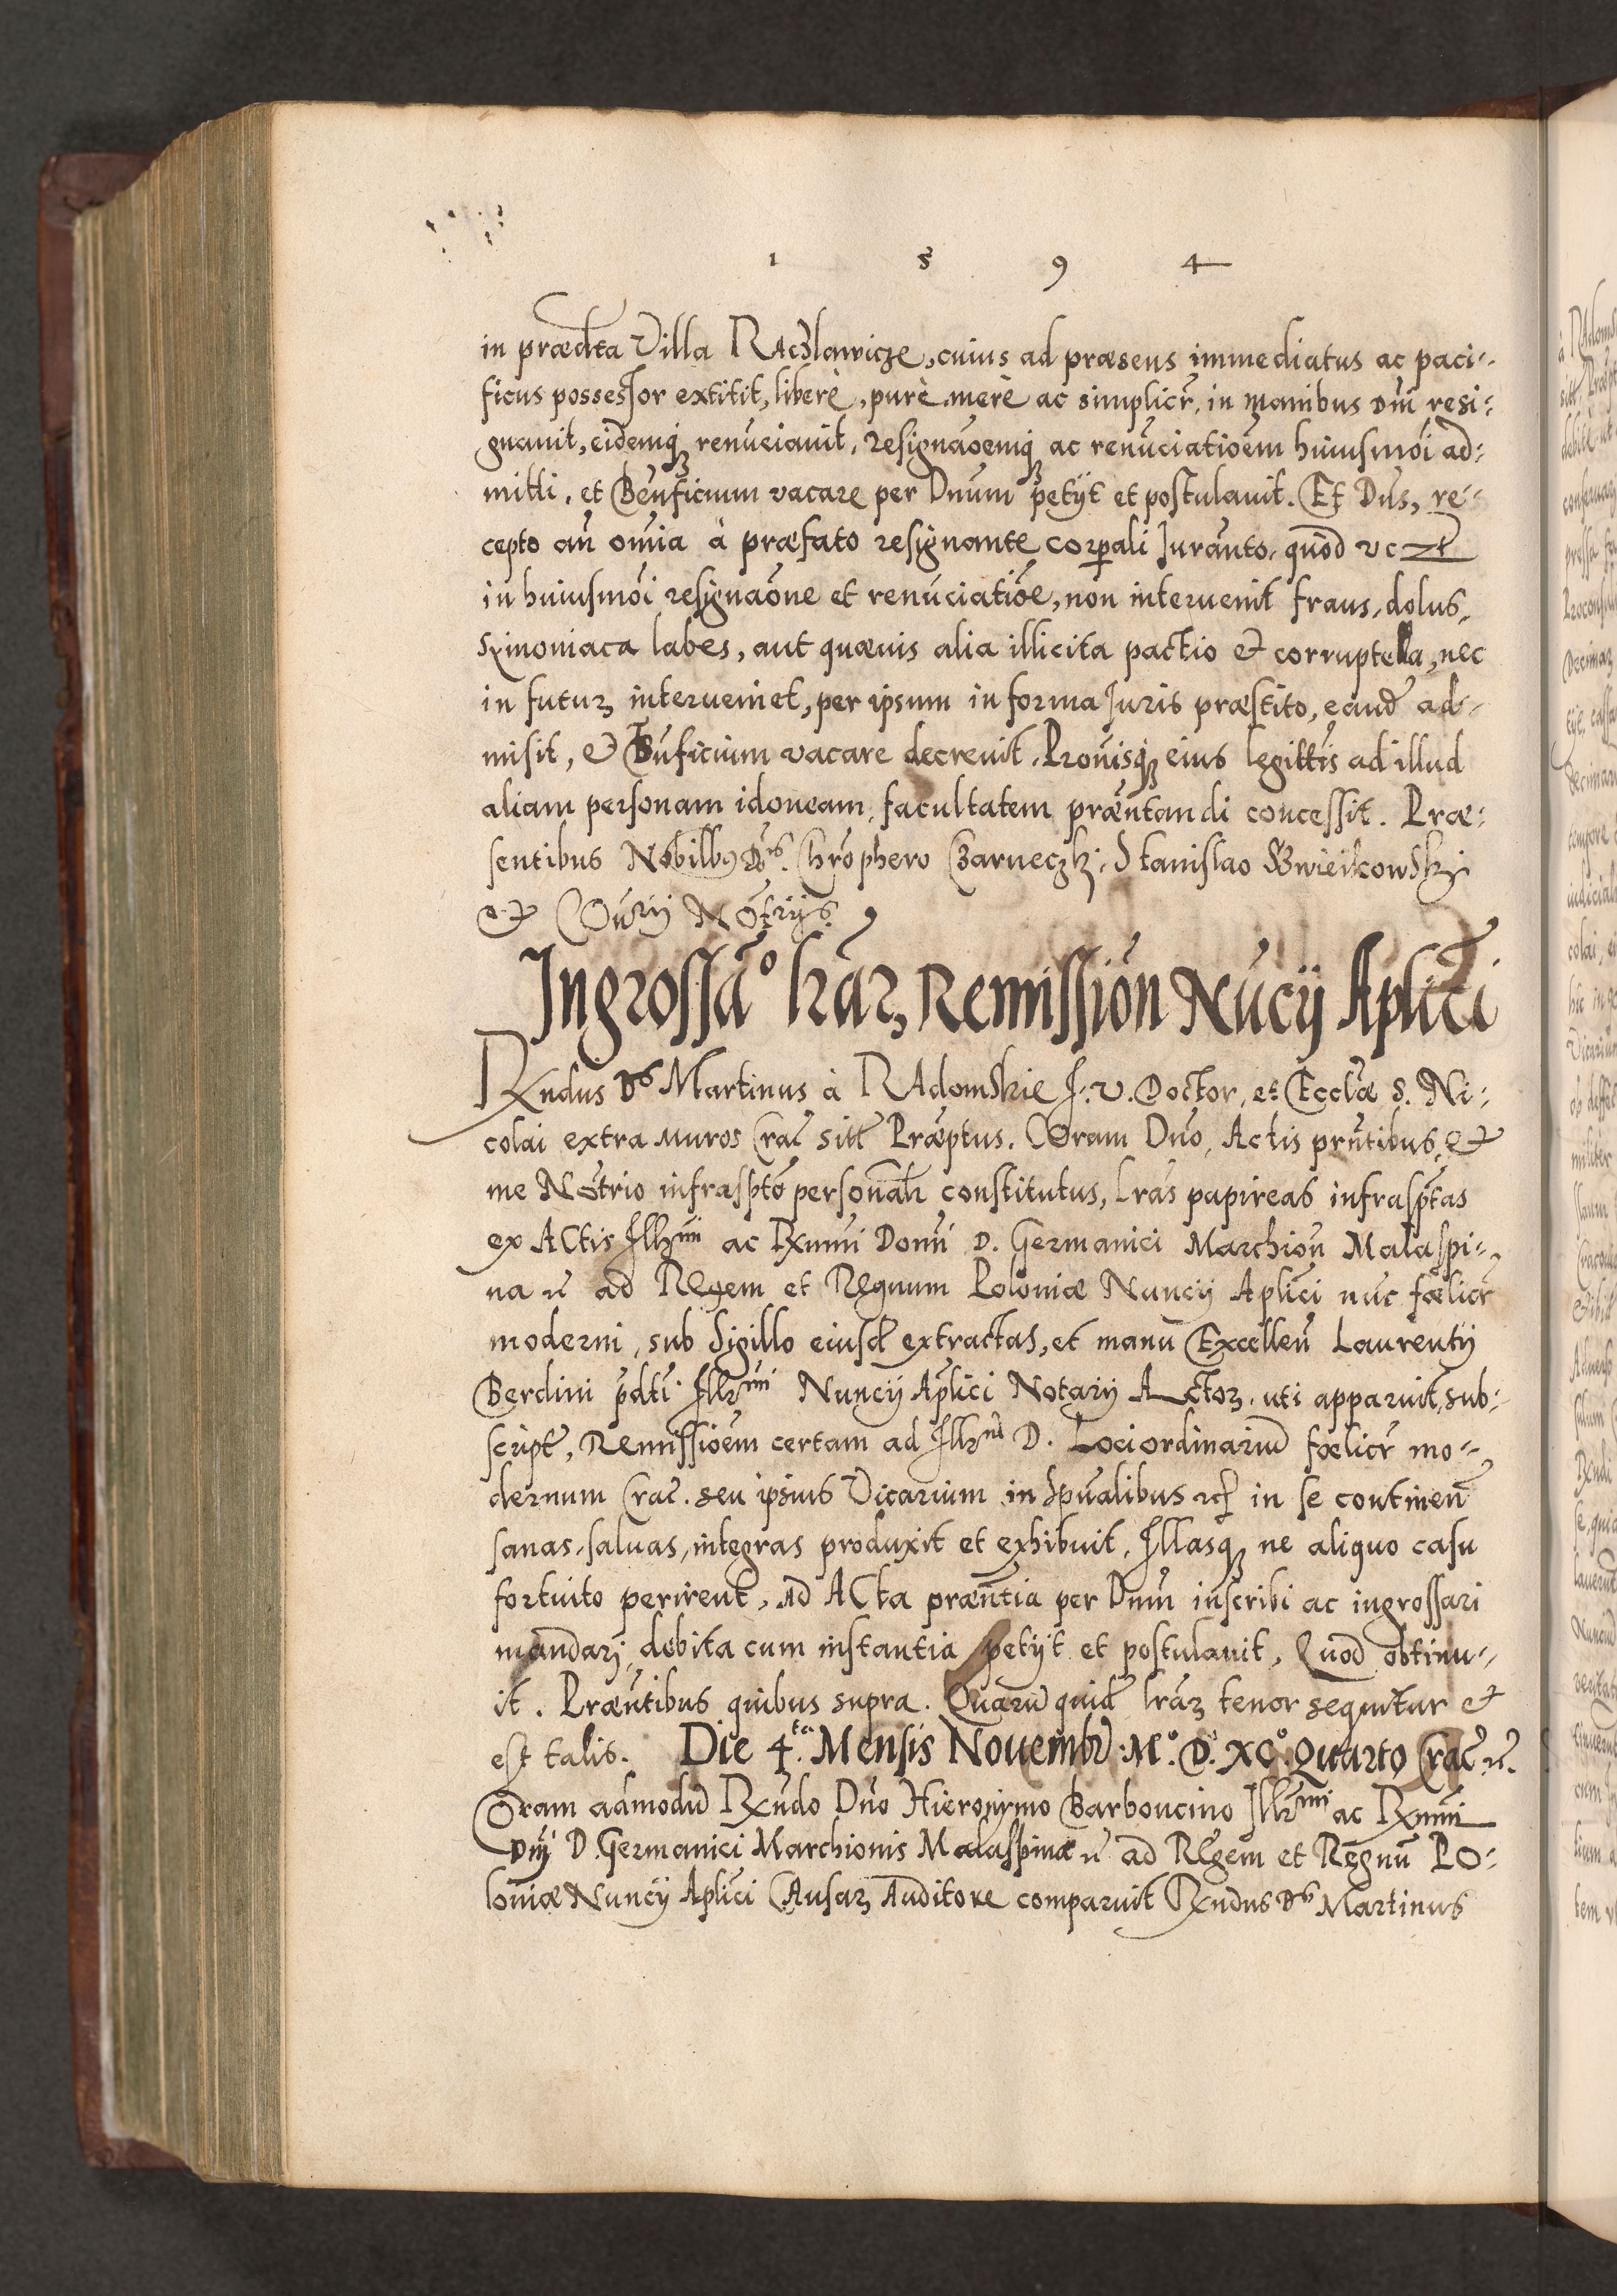 1 5 9 4
in prædcta Villa Raczlawicze, cuius ad præsens immediatus ac paci-
ficus possessor extitit, liberè, purè mere ac simplicr̃, in manibus Dm̃ resi-
gnauit, eidemqꝫ renũciauit, resignãoemqꝫ ac renũciatioẽm huiusmõi ad-
mitti, et Beñficium vacare per Dnum petyt et postulauit. Et Dũs, re-
cepto añ omĩa à præfato resignante corꝑali Iurãnto, quod uc et
in huiusmõi resignãone et renũciatiõe, non interuenit fraus, dolus,
Symoniaca labes, aut quæuis alia illicita pactio et corruptella, nec
in futuꝝ interueniet, per ipsum in forma Iuris præstito, eand̃ ad-
misit, et Bñficium vacare decreuit. Prouisqꝫ eius legittĩs ad illud
aliam personam idoneam, facultatem præñtandi concessit. Præ-
sentibus Nobilbꝰ Dñis Chrõphero Czarneczki, Stanislao Szwieikowski
et Coũrij Nõtrijs.
Ingrossão lrãꝝ Remissioñ Nũcij Aplici
Rx̃ndus Ds Martinus à Radomskie I. V. Doctor, et Eccl̃æ S. Ni-
colai extra muros Crac̃ sitt̃ Præptus. Coram Dño, Actis prñtibus, et
me Nõtrio infrasptõ personãlr constitutus, lrãs papireas infrasptas
ex Actis Illr̃mi ac Rx̃mmi Domñ D. Germanici Marchioñ Malaspi-
na et̃ ad Regem et Regnum Poloniæ Nuncij Aplici nũc fœlicr̃
moderni, sub Sigillo eiusd̃ extractas, et manu Excelleñ Laurentij
Berdini pdti Illr̃mi Nuncij Aplici Notarij Actoꝝ, uti apparuit, sub-
script̃, Remissioẽm certam ad Illr̃m D. Loci ordinariũ fœlicr̃ mo-
dernum Crac̃. seu ipsius Vicarium in Spũalibus etc̃ in se contineñ
sanas, saluas, integras produxit et exhibuit, Illasqꝫ ne aliquo casu
fortuito perirent, ad Acta præñtia per Dnum inscribi ac ingrossari
mandarj, debita cum instantia petyt et postulauit, Quod obtinu-
it. Præñtibus quibus supra. Quarũ quid̃ lrãꝝ tenor sequitur et
est talis. Die 4.ta Mensis Nouembr̃ M.o D. XC.o Quarto Crac̃ et̃.
Coram admodũ Rx̃ndo Dño Hieronymo Barboncino Illr̃mi ac Rx̃mmi
Dnj D. Germanici Marchionis Malaspinæ et̃ ad Regem et Regnũ Po-
loniæ Nuncij Aplici Causaꝝ Auditore comparuit Rx̃ndus Ds Martinus